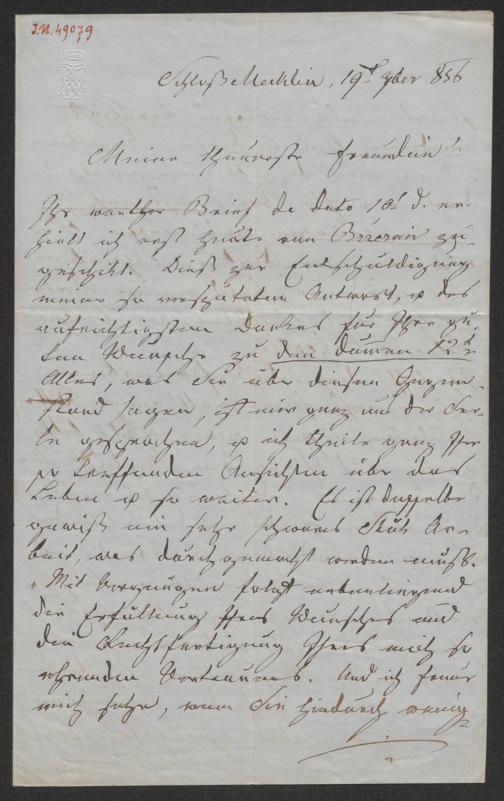 J.N. 49079
Schloß Mechlin, 19t 9ber 856
Meine theuerste Freundin!
Ihr werther Brief de dato 10t d. er-
hielt ich erst heute von Brzezin zu-
geschikt. Dieß zur Entschuldigung
meiner so verspäteten Antwort, & des
aufrichtigsten Dankes für Ihre gu-
ten Wünsche zu dem 12t
Alles, was Sie über diesen Gegen-
stand sagen, ist mir ganz aus der See-
le gesprochen, & ich theile ganz Ihre
so treffenden Ansichten über das
Leben & so weiter. Es ist dasselbe
gewiß ein sehr schweres Stük Ar-
beit, das durchgemacht werden muß.
Mit Vergnügen folgt nebenliegend
die Erfüllung Ihres Wunsches und
die Rechtfertigung Ihres mich so
ehrenden Vertrauens. Und ich freue
mich sehr, wenn Sie hiedurch wenig-